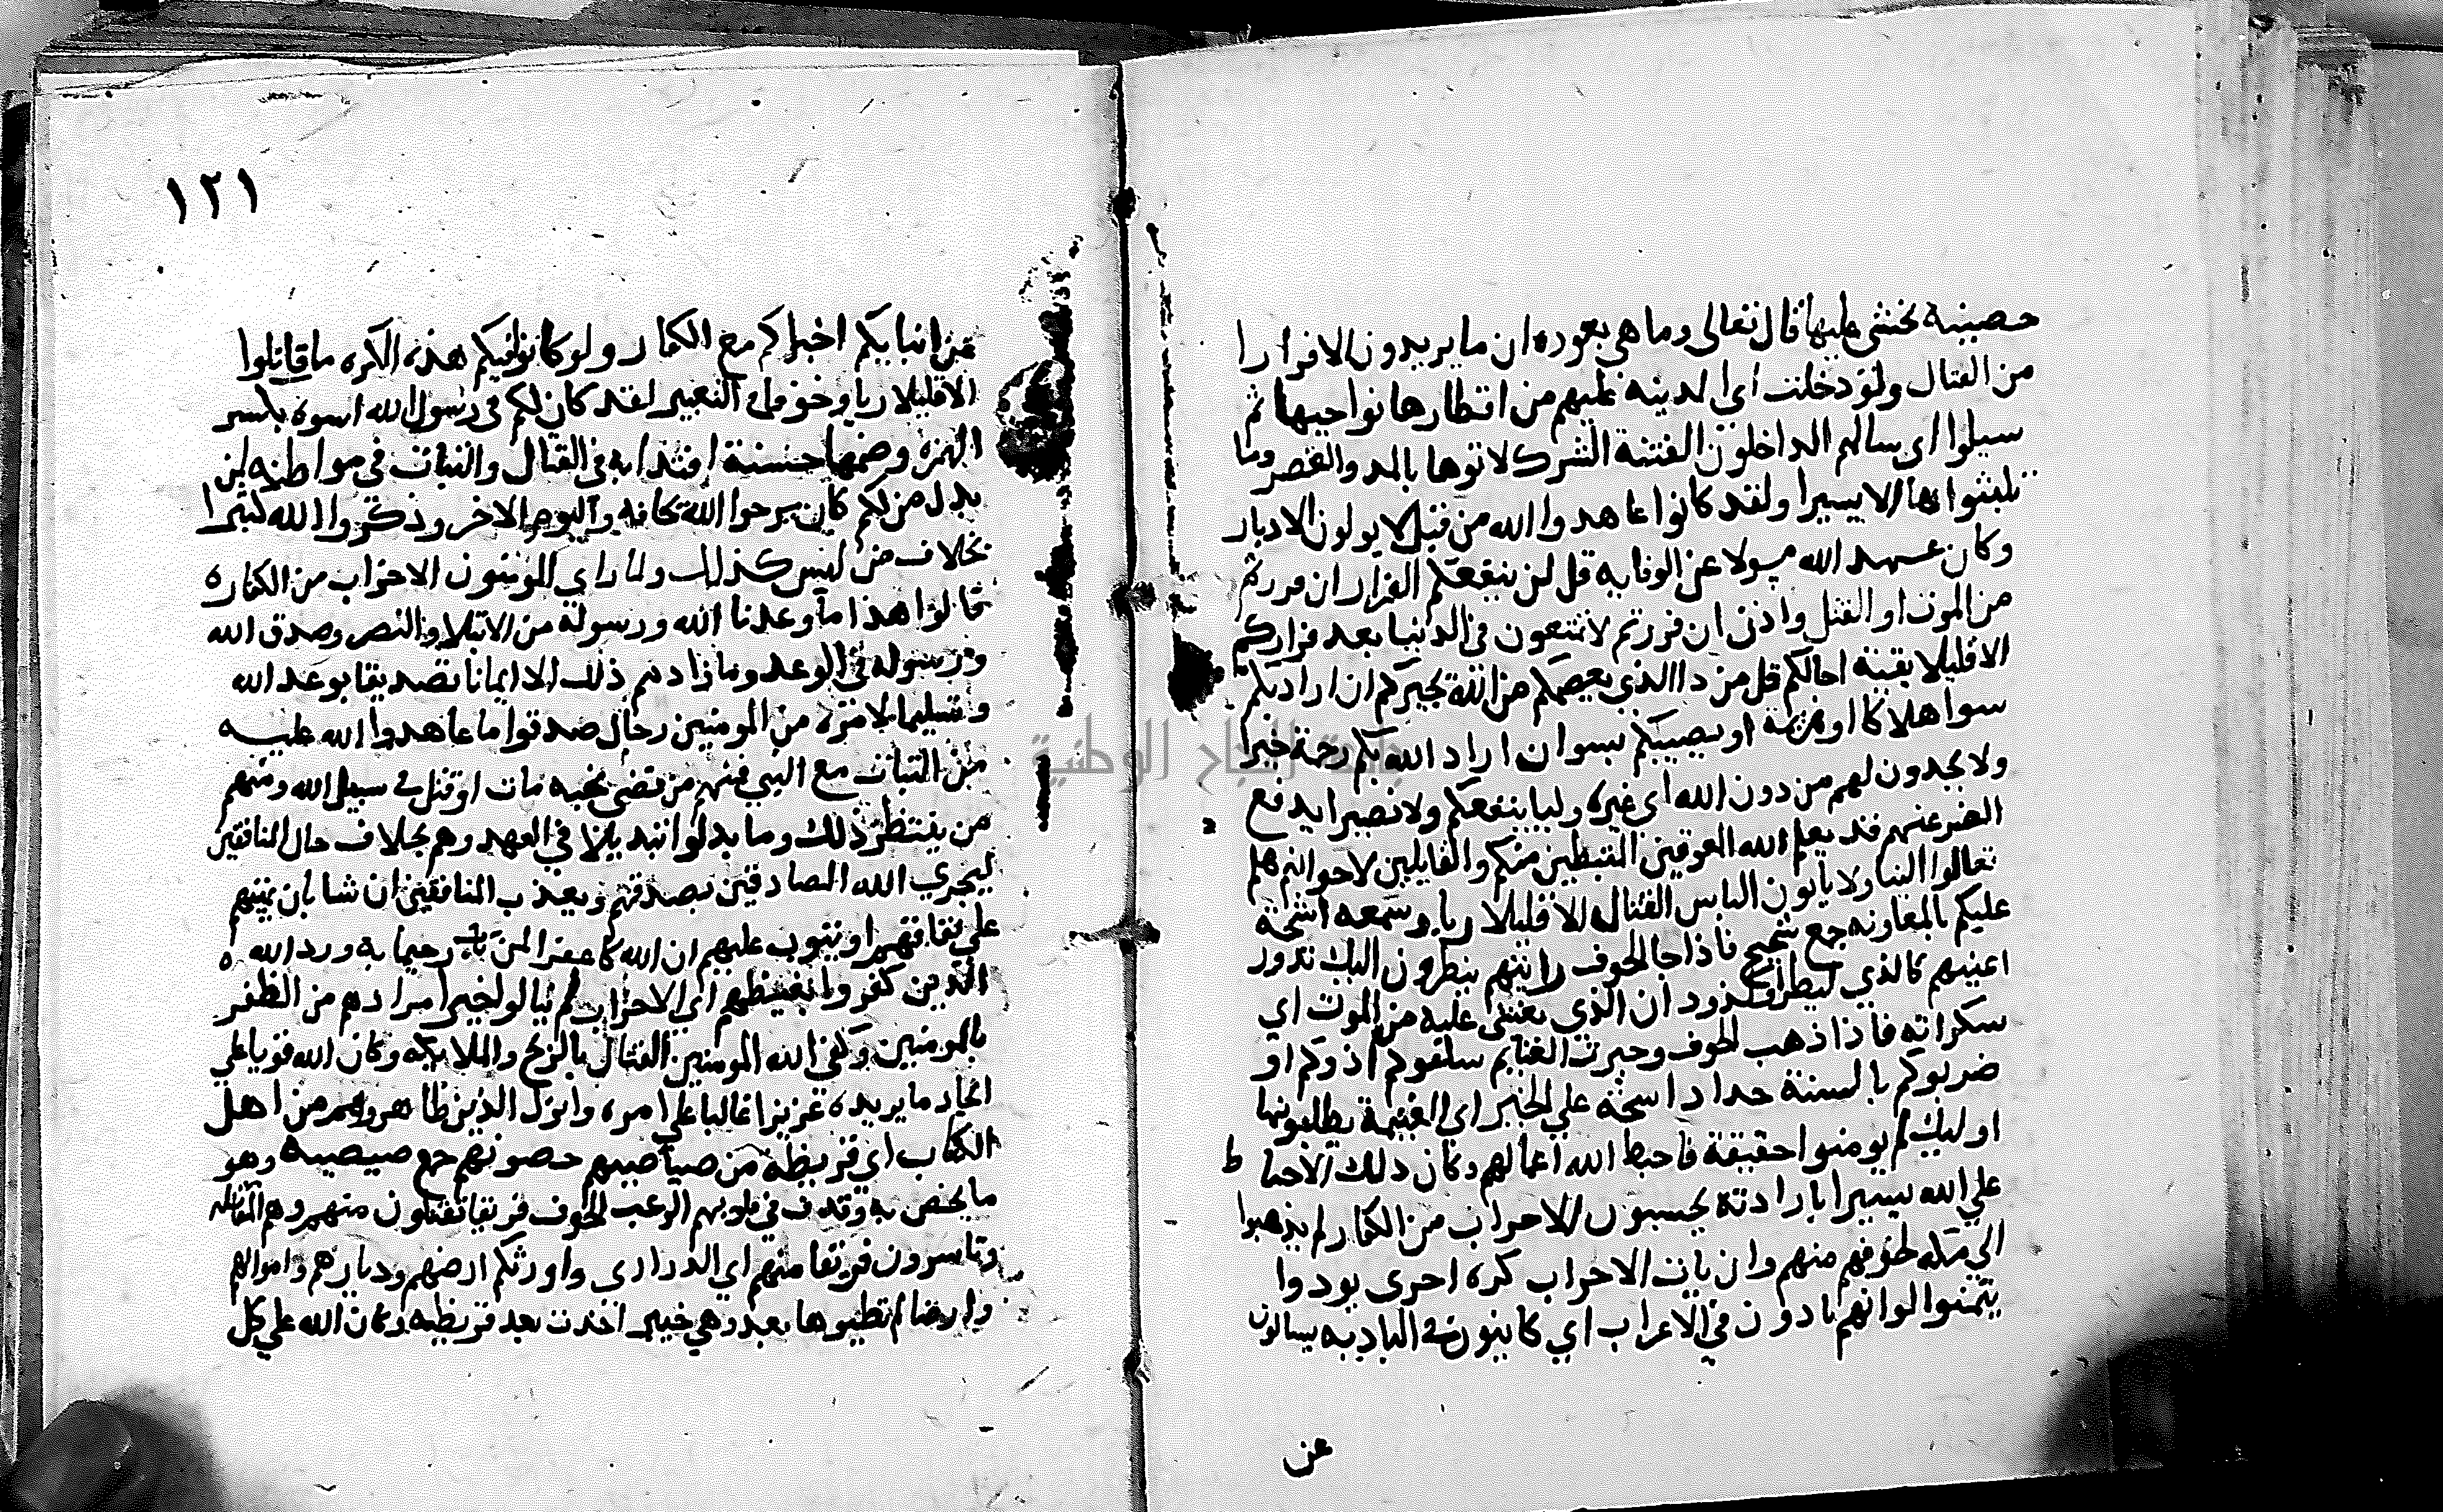 حصينة يخشى عليها قال تعالى وما هي بعورة ان ما يريدون الا فرارا
من القتال ولو دخلت اي المدينه عليهم من اقطارها نواحيها ثم
سيلوا اي سالهم الداخلون الفتنة الشرك لاتوها بالمد والقصر وما
تلبثوا بها الا يسيرا ولقد كانوا عاهدوا الله من قبل لا يولون الادبار
وكان عهد الله مسولا عن الوفا به قل لن ينفعكم الفرار ان فررتم
من الموت او القتل واذن ان فررتم لا تمتعون في الدنيا بعد فراركم
الا قليلا بقية اجالكم قل من ذا الذي يعصمكم من الله يجيركم ان ارادبكم
سوا هلاكا او هزيمة او يصيبكم بسو ان اراد الله بكم رحمة خيرا
ولا يجدون لهم من دون الله اي غيره وليا ينفعكم ولا نصيرا يدفع
الضر عنهم قد يعلم الله المعوقين المثبطين منكم والقايلين لاخوانهم هلم
تعالوا الينا ولا ياتون الباس القتال الا قليلا ريا وسمعه اشحة
عليكم بالمعاونه جمع شحيح فاذا جا الخوف رايتهم ينظرون اليك تدور
اعينهم كالذي كنظر او كدوران الذي يغشى عليه من الموت اي
سكراته فاذا ذهب الخوف وحيزت الغنايم سلقوكم اذوكم او
ضربوكم بالسنة حداد اشحة علي الخير اي الغنيمة يطلبونها
اوليك لم يومنوا حقيقة فاحبط الله اعمالهم وكان ذلك الاحباط
علي الله يسيرا بارادته يحسبون الاحزاب من الكفار لم يذهبوا
الي مكه لخوفهم منهم وان يات الاحزاب كره اخرى يودوا
يتمنوا لو انهم بادون في الاعراب اي كاينون في البادية يسالون
عن
١٢١
عن انبايكم اخباركم مع الكفار ولو كانوا فيكم هذه الكره ما قاتلوا
الا قليلا ريا وخوفا من التعيير لقد كان لكم في رسول الله اسوة بكسر
الهمزه وضمها حسنة اقتدا به في القتال والثبات في مواطنه لمن
بدل من لكم كان يرجوا الله يخافه واليوم الاخر وذكروا الله كثيرا
بخلاف من ليس كذلك ولما راي المومنون الاحزاب من الكفاره
قالوا هذا ما وعدنا الله ورسوله من الابتلا والنصر وصدق الله
ورسوله في الوعد وما زادهم ذلك الا ايمانا تصديقا بوعد الله
وتسليما لامره من المومنين رجال صدقوا ما عاهدوا الله عليه
من الثبات مع النبي فمنهم من قضى نحبه مات او قتل في سبيل الله ومنهم
من ينتظر ذلك وما بدلوا تبديلا في العهد وهم بخلاف حال المنافقين
ليجزي الله الصادقين بصدقهم ويعذب المنافقين ان شا بان يميتهم
علي نفاقهم او يتوب عليهم ان الله كا غفرا لمن تاب رحيما به ورد الله
الذين كفروا بغيظهم اي الاحزاب لم ينالوا خيرا مرادهم من الظفر
بالمومنين وكفى الله المومنين القتال بالريح والملايكه وكان الله قويا علي
ايجاد ما يريده عزيزا غالبا على امره وانزل الذين ظاهروهم من اهل
الكتاب اي قريظه من صياصيهم حصونهم جمع صيصيه وهو
ما يحصن به وقذف في قلوبهم الرعب الخوف فريقا تقتلون منهم وهم المقاتله
وتاسرون فريقا منهم اي الذراري واورثكم ارضهم وديارهم واموالهم
وارضا لم تطيوها بعد وهي خيبر اخذت بعد قريظه وكان الله علي كل
جامعة النجاح الوطنية